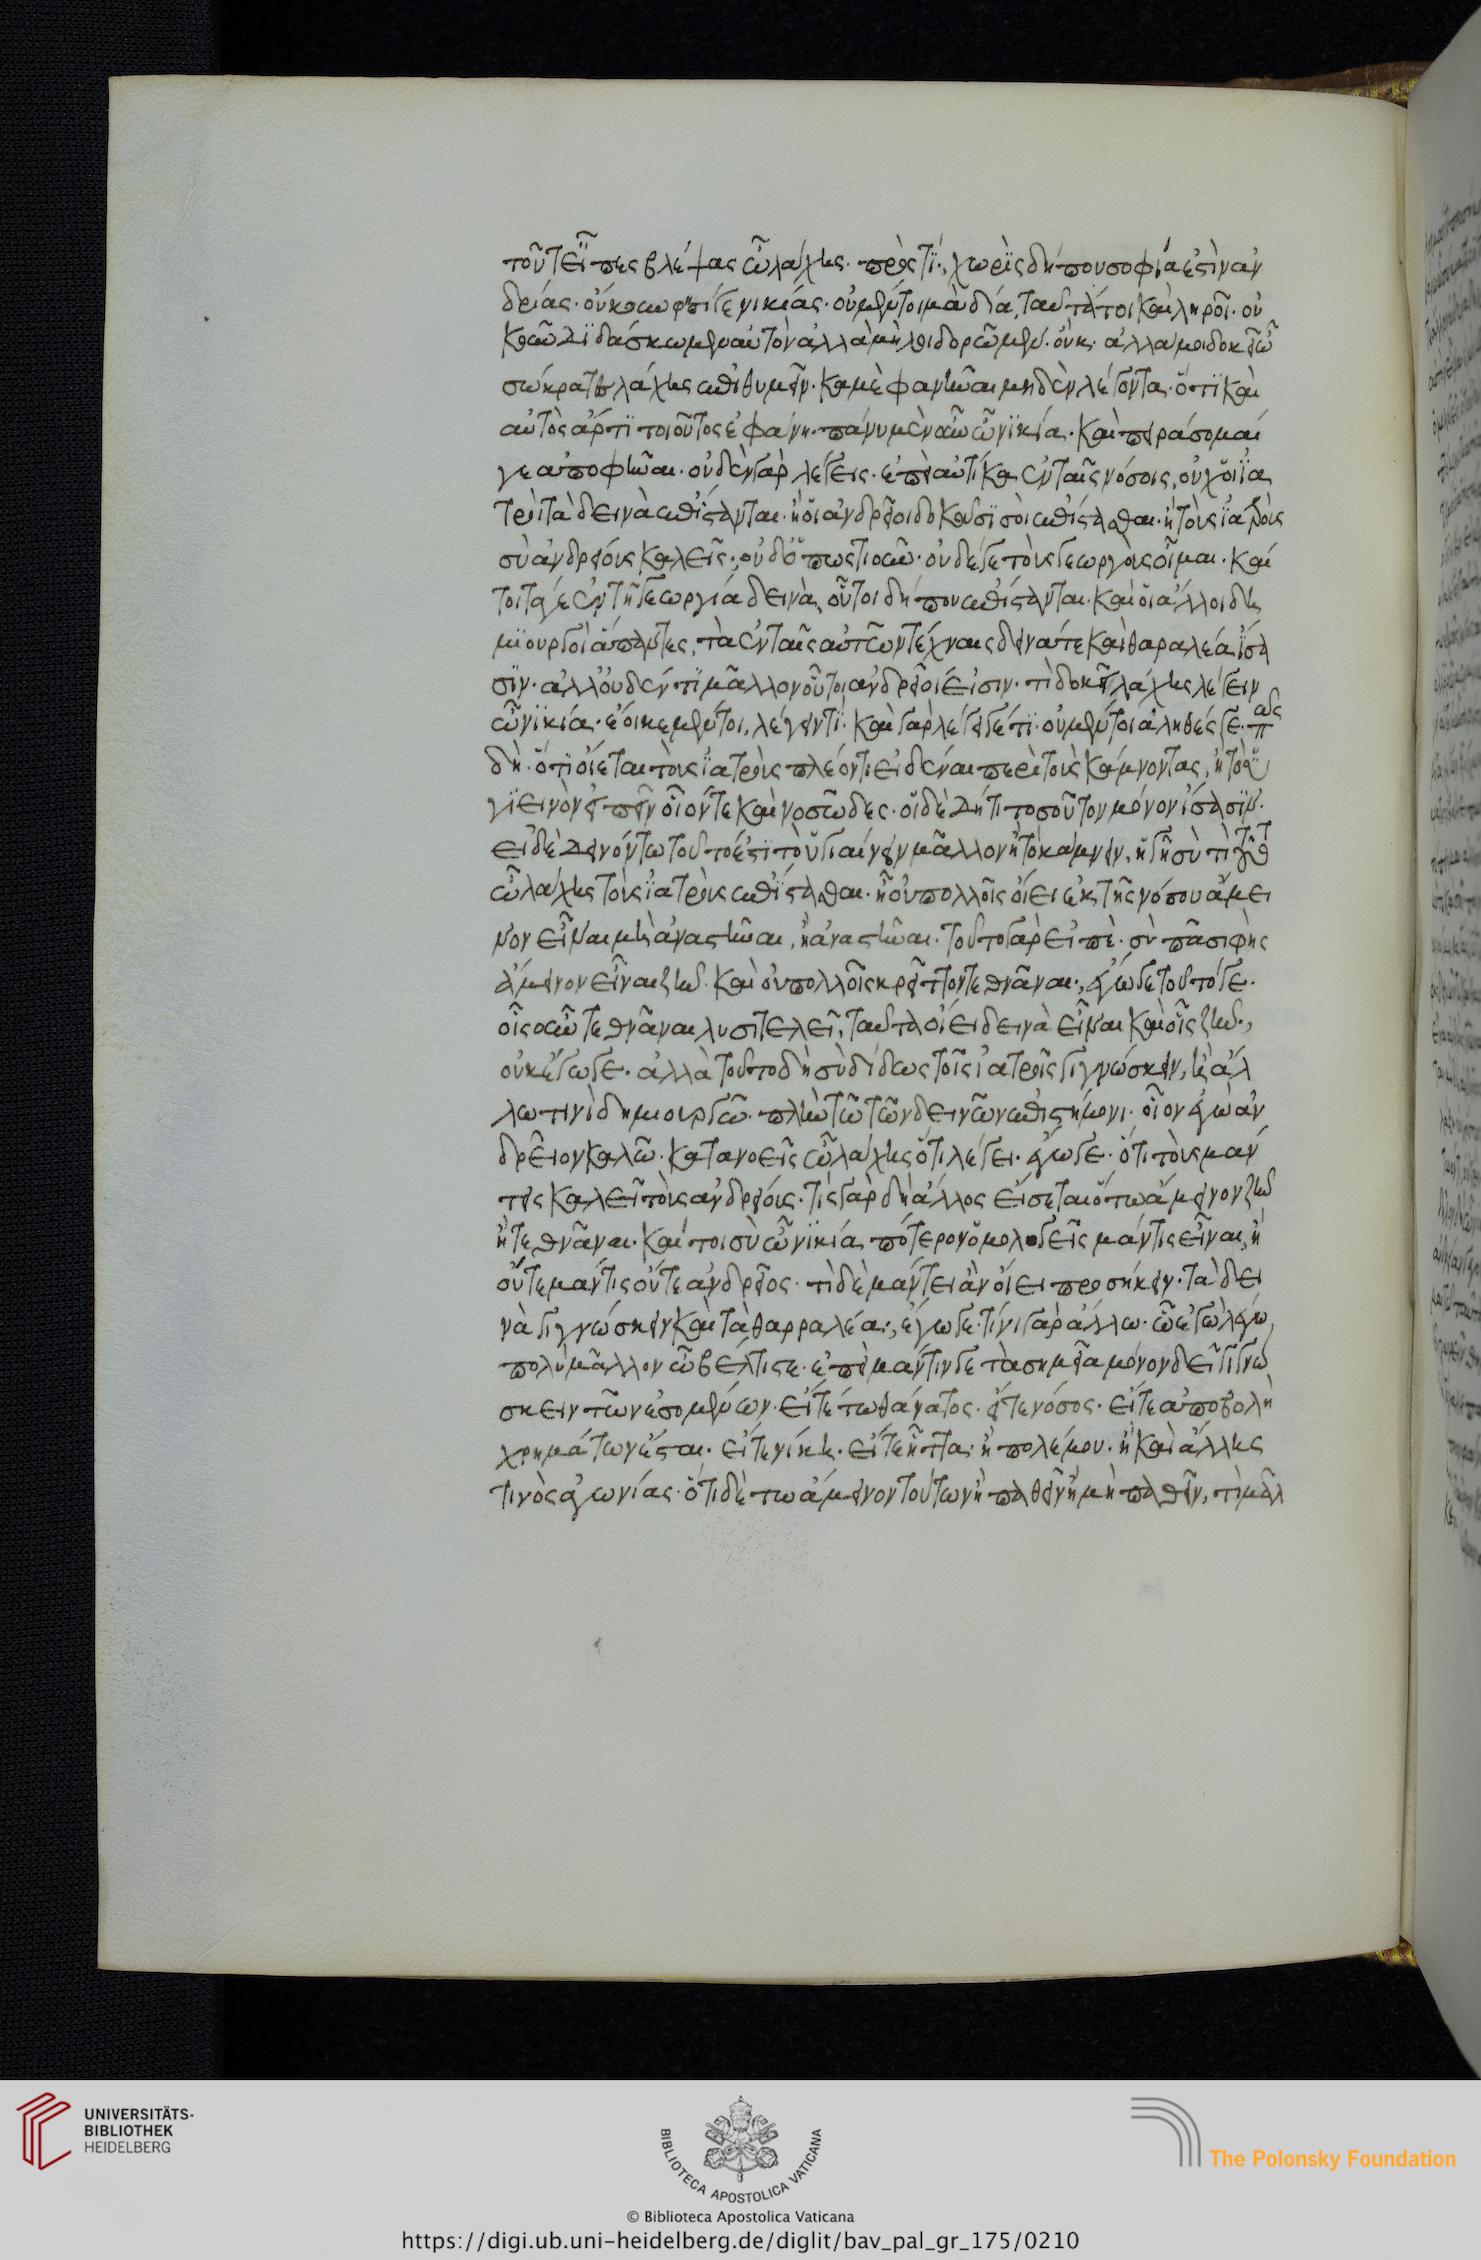 τοῦτ εἶπες βλέψας ὦ λάχης. πρὸς τί., χωρὶς δήπου σοφία ἐστὶν ἀν
δρίας. οὔκουν φησί γε νικίας. οὐ μέντοι μὰ δία, ταῦτά τοι καὶ ληρεῖ. οὐ
κοῦν διδάσκωμεν αὐτὸν ἀλλὰ μὴ λοιδορῶμεν. οὔκ. ἀλλά μοι δοκεῖ ὦ
σώκρατες λάχης ἐπιθυμεῖν. κἀμὲ φανῆναι μηδὲν λέγοντα. ὅτι καὶ
αὐτὸς ἄρτι τοιοῦτος ἐφάνη. πάνυ μὲν οὖν ὦ νικία. καὶ πειράσομαί
γε ἀποφῆναι. οὐδὲν γὰρ λέγεις. ἐπεὶ αὐτίκα ἐν ταῖς νόσοις, οὐχ οἱ ἰα
τροὶ τὰ δεινὰ ἐπίστανται. ἢ οἱ ἀνδρεῖοι δοκοῦσί σοι ἐπίστασθαι. ἢ τοὺς ἰατροὺς
σὺ ἀνδρείους καλεῖς., οὐδ' ὅπως τιοῦν. οὐδέ γε τοὺς γεωργοὺς οἶμαι. καί
τοι τά γε ἐν τῇ γεωργίᾳ δεινὰ, οὗτοι δήπου ἐπίστανται. καὶ οἱ ἄλλοι δη
μιουργοὶ ἅπαντες, τὰ ἐν ταῖς αὑτῶν τέχναις δεινά τε καὶ θαραλέα ἴσα
σιν. ἀλλ' οὐδέν τι μᾶλλον οὗτοι ἀνδρεῖοί εἰσιν. τί δοκεῖ λάχης λέγειν
ὦ νικία. ἔοικε μέντοι, λέγειν τί. καὶ γὰρ λέγει γέ τι. οὐ μέντοι ἀληθές γε. πῶς
δή. ὅτι οἴεται τοὺς ἰατροὺς πλέον τι εἰδέναι περὶ τοὺς κάμνοντας, ἢ τὸ ὑ
γιεινὸν εἰπεῖν οἷόν τε καὶ νοσῶδες. οἱ δὲ δή τι τοσοῦτον μόνον ἴσασιν.
εἰ δὲ δεινόν τω τοῦτό ἐστι τὸ ὑγιαίνειν μᾶλλον ἢ τὸ κάμνειν, ἡγῇ σὺ τουτὶ
ὦ λάχης τοὺς ἰατροὺς ἐπίστασθαι. ἢ οὐ πολλοῖς οἴει ἐκ τῆς νόσου ἄμει
νον εἶναι μὴ ἀναστῆναι, ἢ ἀναστῆναι. τοῦτο γὰρ εἰπέ. σὺ πᾶσι φὴς
ἄμεινον εἶναι ζῆν. καὶ οὐ πολλοῖς κρεῖττον τεθνᾶναι., ἔγωγε τοῦτό γε.
οἷς οὖν τεθνᾶναι λυσιτελεῖ, ταῦτα οἴει δεινὰ εἶναι καὶ οἷς ζῆν.,
οὐκ ἔγωγε. ἀλλὰ τοῦτο δὴ σὺ δίδως τοῖς ἰατροῖς γιγνώσκειν, ἢ ἄλ
λω τινὶ δημιουργῶ. πλὴν τῶ τῶν δεινῶν ἐπιστήμονι. οἷον ἐγὼ ἀν
δρεῖον καλῶ. κατανοεῖς ὦ λάχης ὅτι λέγει. ἔγωγε. ὅτι τοὺς μάν
τεις καλεῖ τοὺς ἀνδρείους. τίς γὰρ δὴ ἄλλος εἴσεται ὅτω ἄμεινον ζῆν
ἢ τεθνᾶναι. καί τοι σὺ ὦ νικία πότερον ὁμολογεῖς μάντις εἶναι, ἢ
οὔτε μάντις οὔτε ἀνδρεῖος. τί δὲ μάντει ἂν οἴει προσήκειν. τὰ δει
νὰ γιγνώσκειν καὶ τὰ θαρραλέα., ἔγωγε. τίνι γὰρ ἄλλω. ὧ ἐγὼ λέγω
πολὺ μᾶλλον ὦ βέλτιστε. ἐπεὶ μάντιν γε τὰ σημεῖα μόνον δεῖ γιγνώ
σκειν τῶν ἐσομένων. εἴτέ τω θάνατος. εἴτε νόσος. εἴτε ἀποβολὴ
χρημάτων ἔσται. εἴτε νίκη. εἴτε ἧττα. ἢ πολέμου. ἢ καὶ ἄλλης
τινὸς ἀγωνίας. ὅτι δέ τω ἄμεινον τούτων ἢ παθεῖν ἢ μὴ παθεῖν, τί μᾶλ
UNIVERSITÄTS-
BIBLIOTHEK
HEIDELBERG
BIBLIOTECA APOSTOLICA VATICANA
The Polonsky Foundation
© Biblioteca Apostolica Vaticana
https://digi.ub.uni-heidelberg.de/diglit/bav_pal_gr_175/0210